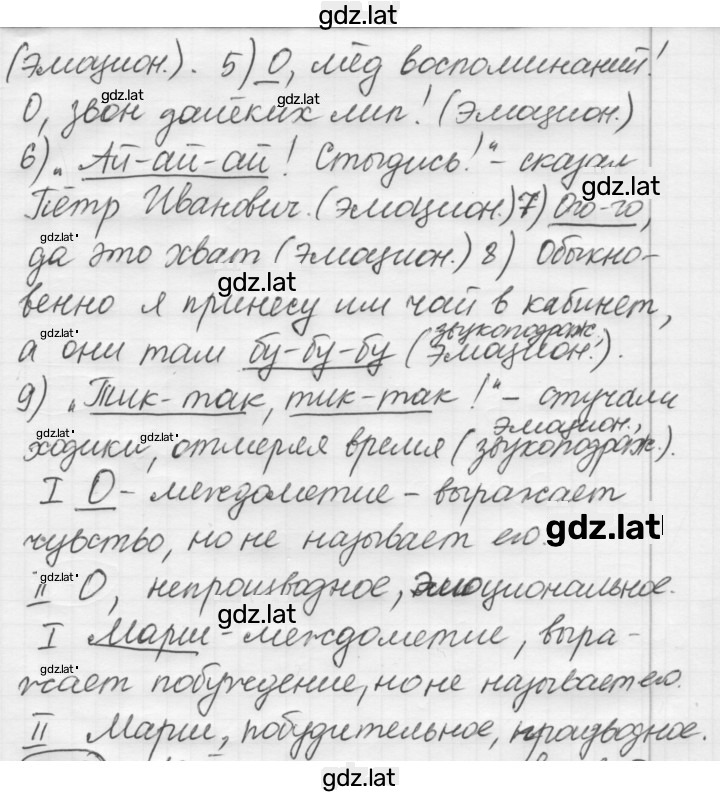 gdz.lat
(Эмоцион.). 5) О, мёд воспоминаний!
О, звон далёких лип! (Эмоцион.)
6) „Ай-ай-ай! Стыдись!“ - сказал
Пётр Иванович. (Эмоцион.) 7) Ого-го,
да это хват (Эмоцион.) 8) Обыкно-
венно я принесу им чай в кабинет,
а они там бу-бу-бу (звукоподраж., Эмоцион.).
9) „Тик-так, тик-так!“ - стучали
ходики, отмеряя время (эмоцион., звукоподраж.).
I О - междометие - выражает
чувство, но не называет его.
II О, непроизводное, эмоциональное.
I Марш - междометие, выра-
жает побуждение, но не называет его.
II Марш, побудительное, производное.
gdz.lat